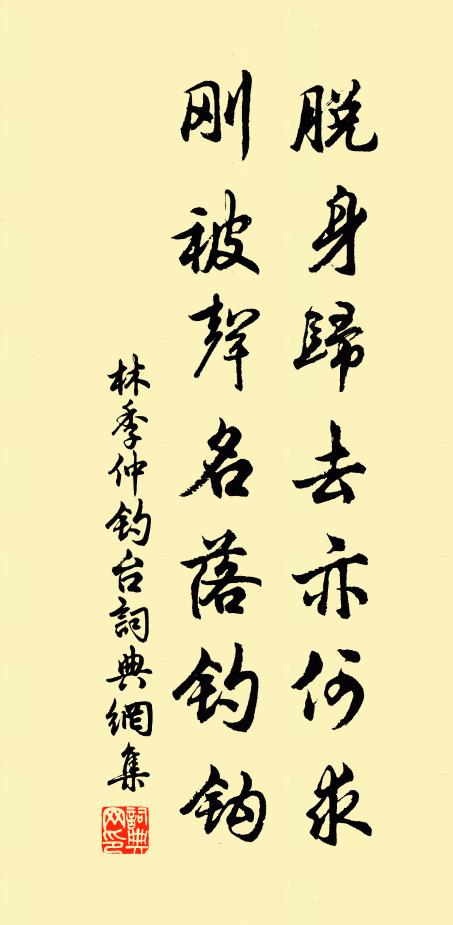 脱身歸去亦何求
刚被聲名落钓钩
林季仲钓台詞典網集
詞典网印